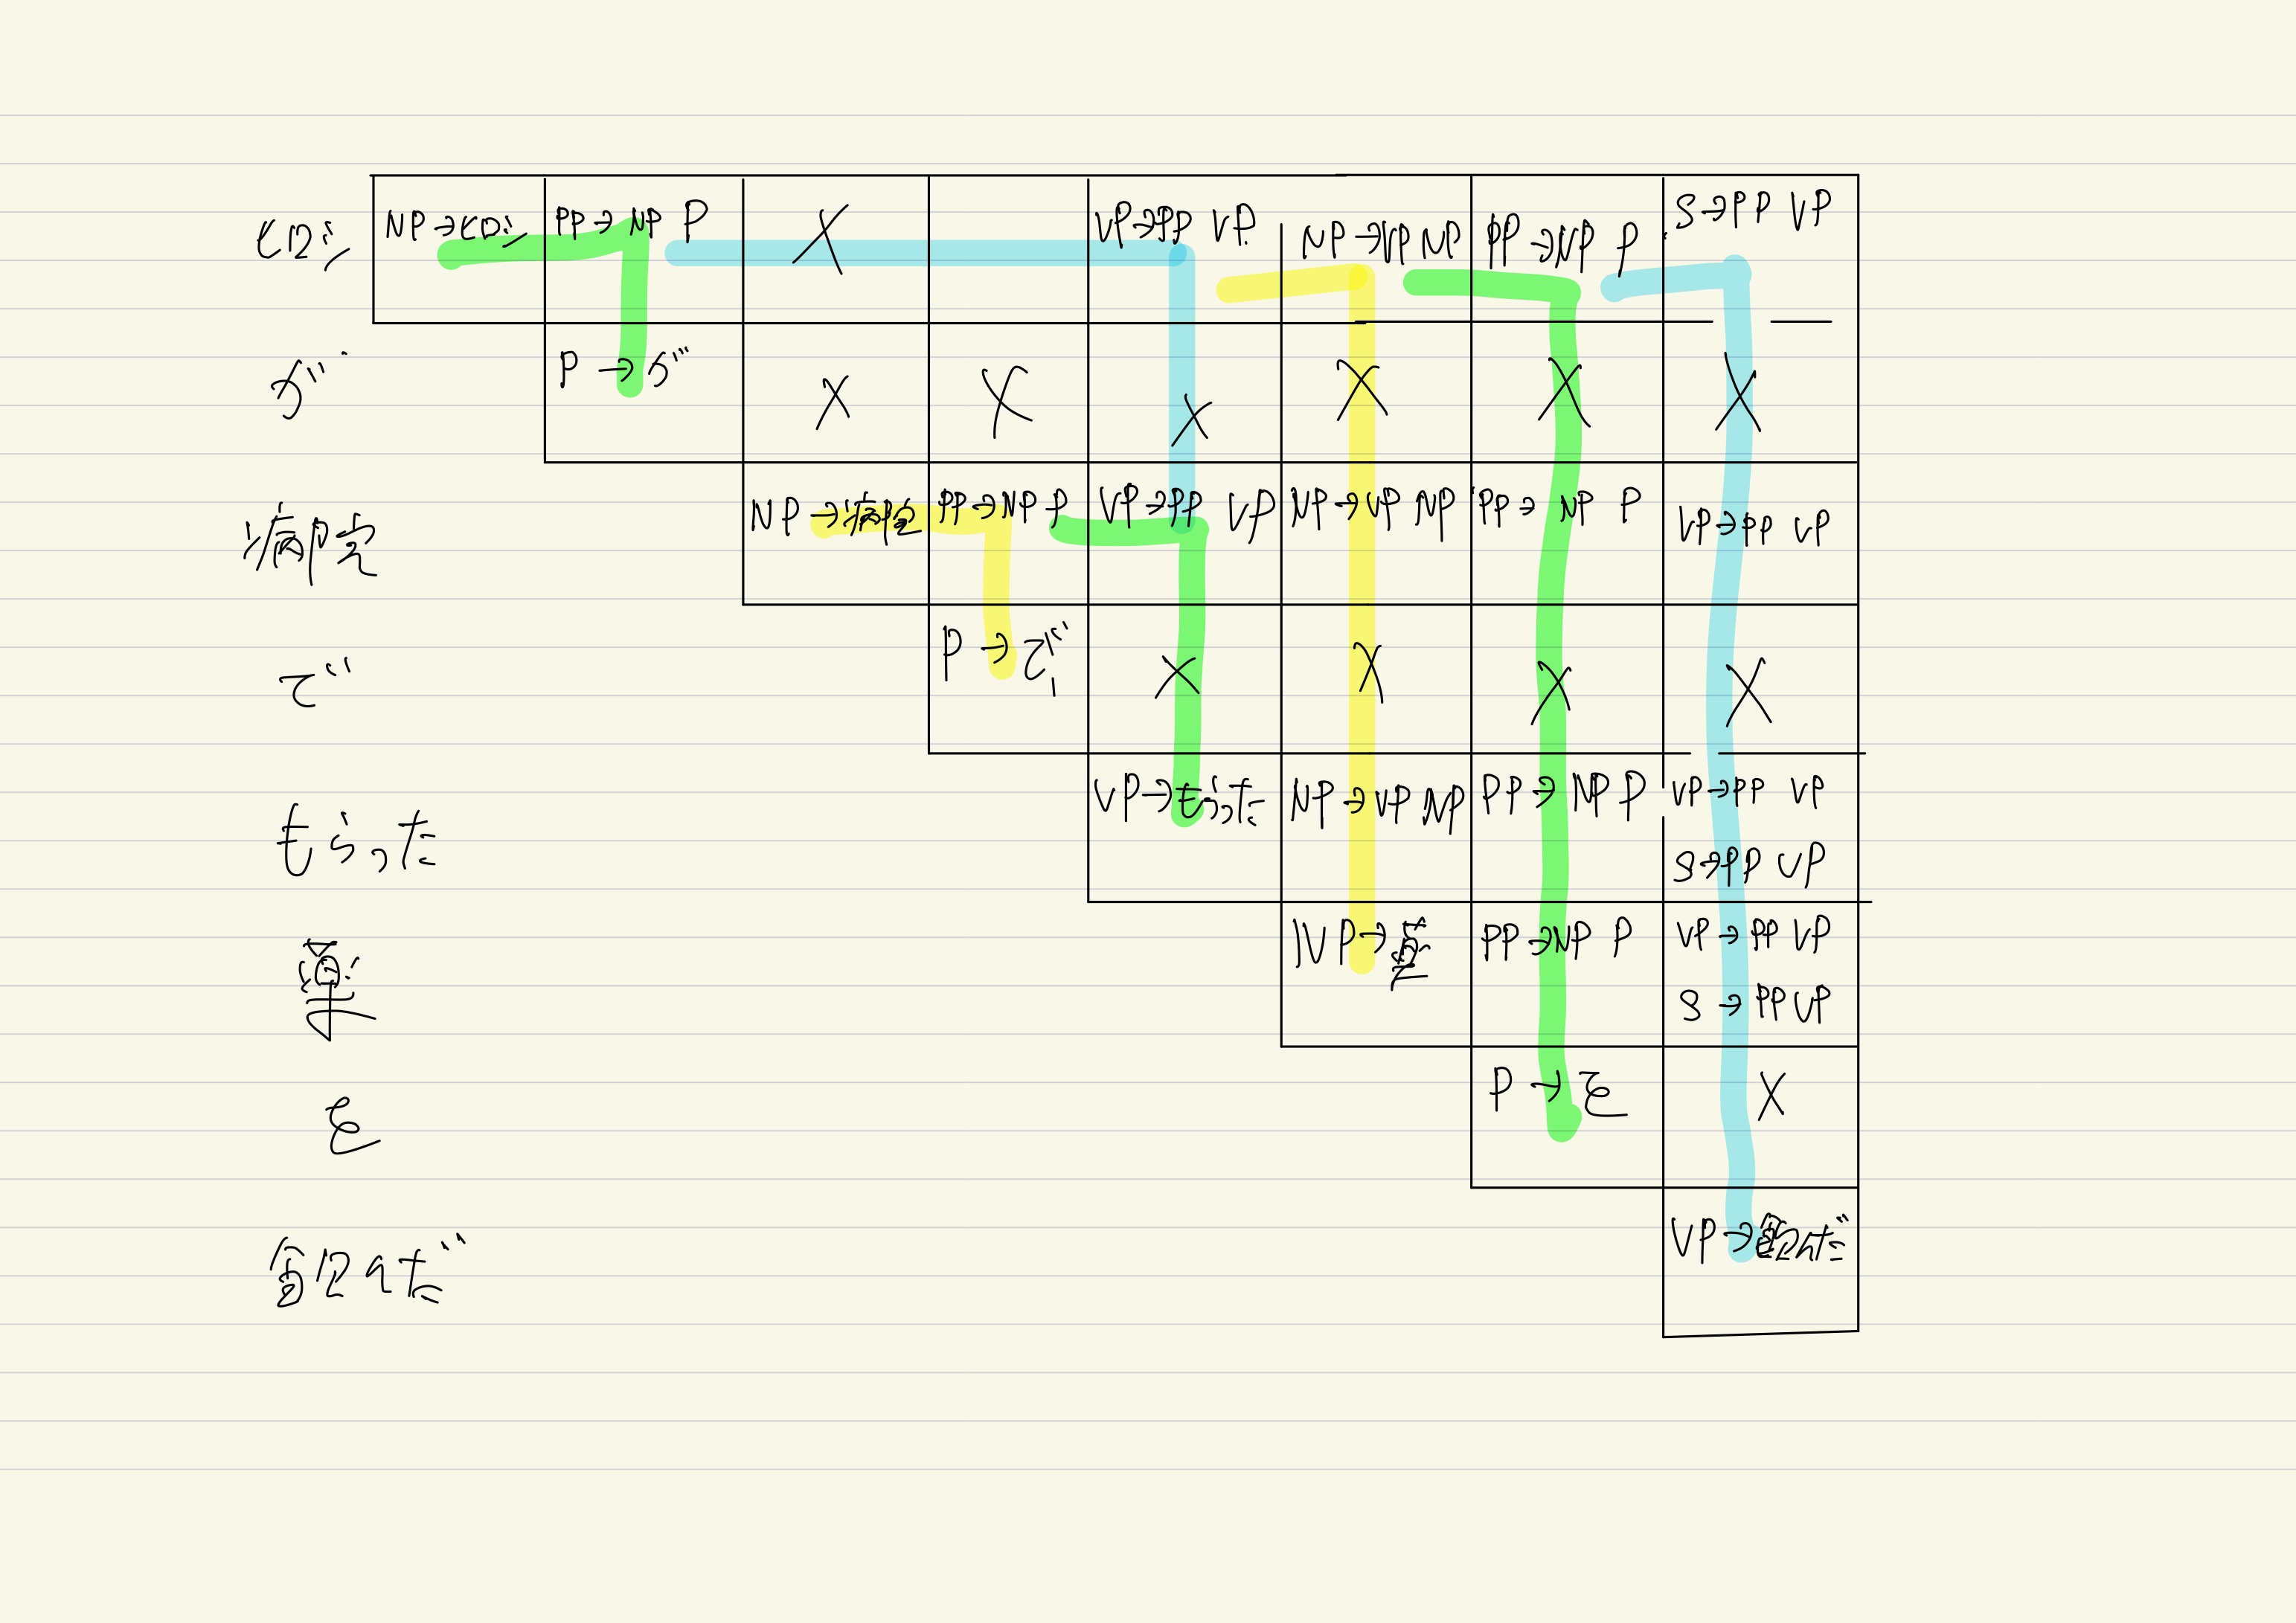 ヒロシ NP→ヒロシ PP→NP P X VP→PP VP NP→VP NP PP→NP P S→PP VP
が P→が X X X X X X
病院 NP→病院 PP→NP P VP→PP VP NP→VP NP PP→NP P VP→PP VP
で P→で X X X X
もらった VP→もらった NP→VP NP PP→NP P VP→PP VP
S→PP VP
薬 NP→薬 PP→NP P VP→PP VP
S→PP VP
を P→を X
飲んだ VP→飲んだ